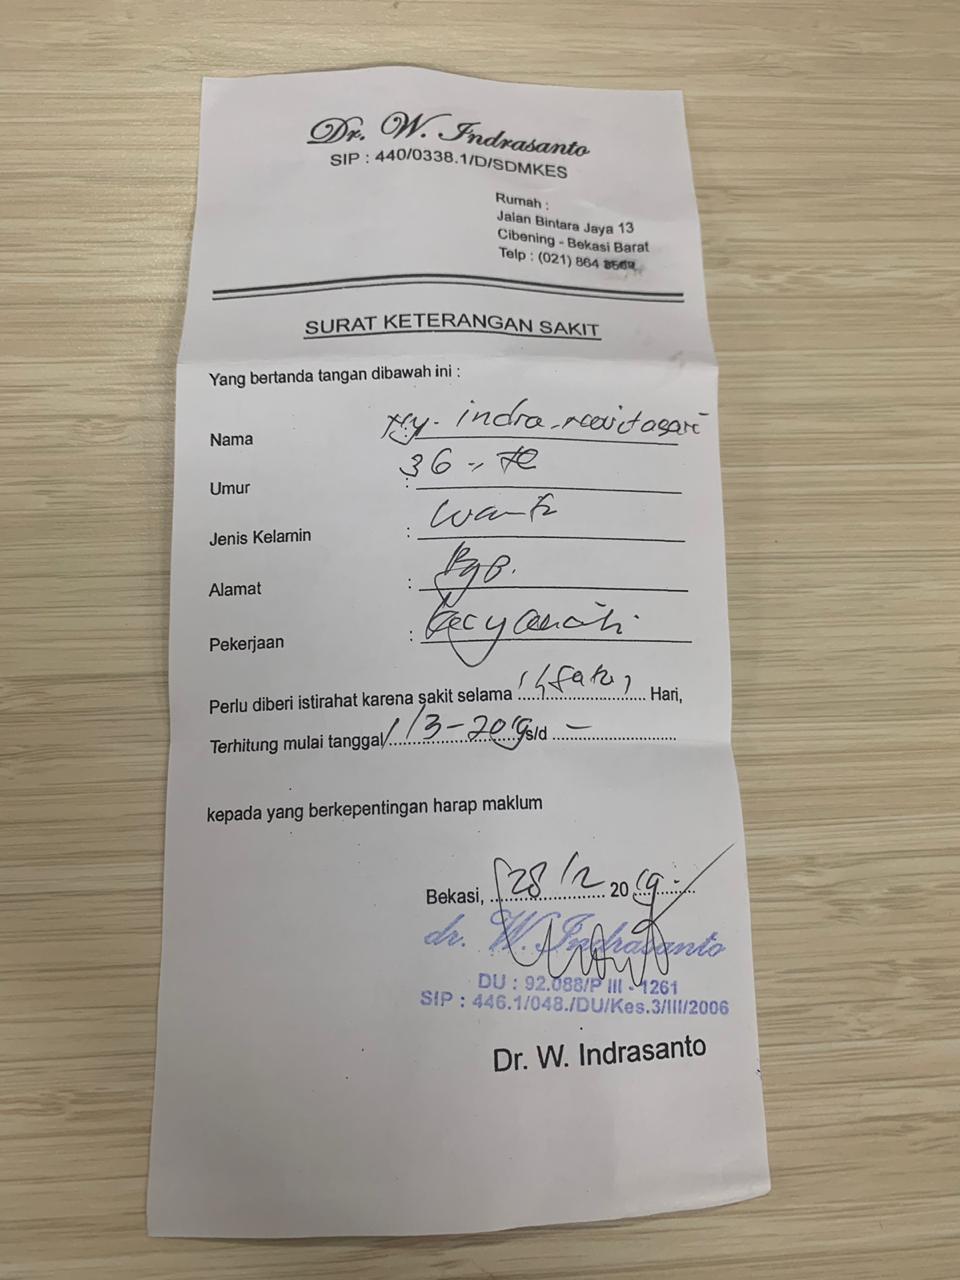 Dr. W. Indrasanto
SIP : 440/0338.1/D/SDMKES
Rumah :
Jalan Bintara Jaya 13
Cibening - Bekasi Barat
Telp : (021) 864
SURAT KETERANGAN SAKIT
Yang bertanda tangan dibawah ini :
Nama Ny. indra novitasari
Umur : 36
Jenis Kelamin :
Alamat :
Pekerjaan : Karyawati
Perlu diberi istirahat karena sakit selama 1 (satu) Hari,
Terhitung mulai tanggal 1/3-2019 s/d -
kepada yang berkepentingan harap maklum
Bekasi, 28/2 2019
dr. W. Indrasanto
DU : 92.088/P III - 1261
SIP : 446.1/048./DU/Kes.3/III/2006
Dr. W. Indrasanto